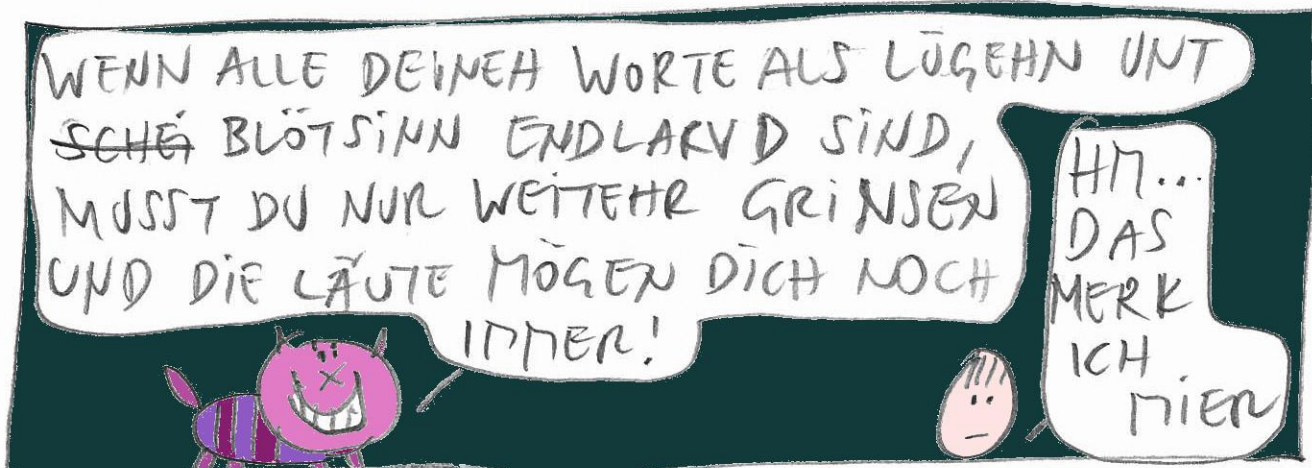 WENN ALLE DEINEH WORTE ALS LÜGEHN UNT
SCHEi BLÖTSiNN ENDLARVD SiND,
MUSST DU NUR WEITEHR GRiNSEN
UND DiE LÄUTE MÖGEN DiCH NOCH
IMMER!
HM...
DAS
MERK
ICH
MiER